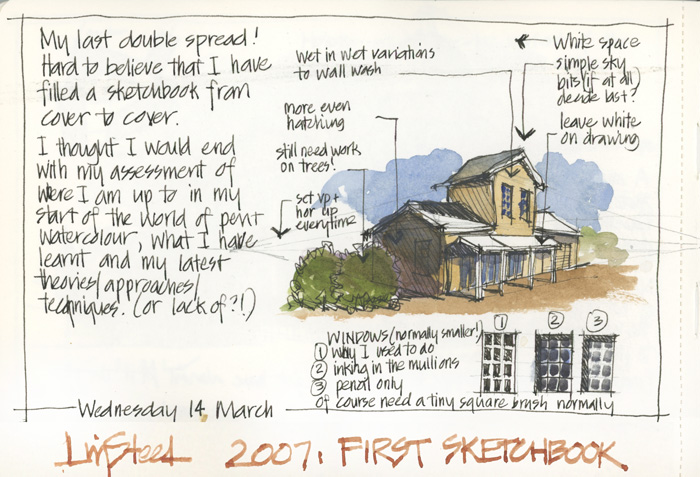 My last double spread!
Hard to believe that I have
filled a sketchbook from
cover to cover.
I thought I would end
with my assessment of
were I am up to in my
start of the world of pen+
watercolour, what I have
learnt and my latest
theories/approaches/
techniques. (or lack of?!)
wet in wet variations
to wall wash
more even
hatching
still need work
on trees!
set vp+
hor up
everytime
White space
simple sky
bits (if at all)
decide last?
leave white
on drawing
WINDOWS (normally smaller!)
1 way I used to do
2 inking in the mullions
3 pencil only
of course need a tiny square brush normally
1 2 3
Wednesday 14 March
Liz Steel 2007: FIRST SKETCHBOOK